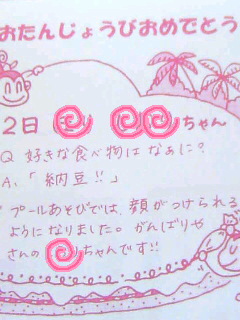 おたんじょうびおめでとう
2日 ちゃん
Q 好きな食べ物はなぁに?
A.「納豆!!」
プールあそびでは、顔がつけられる
ようになりました。がんばりや
さんの ちゃんです!!